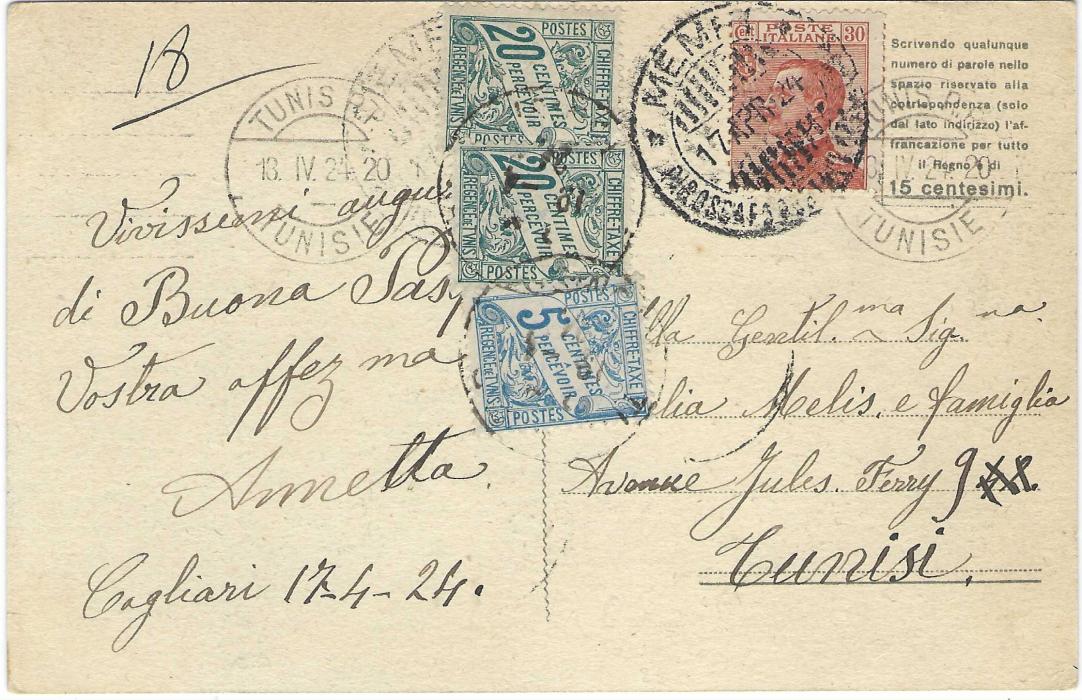 18
TUNIS
18. IV. 24 - 20
TUNISIE
POSTES
CHIFFRE-TAXE
20 CENTIMES
PERCEVOIR
REGENCE DE TUNIS
POSTES
CHIFFRE-TAXE
20 CENTIMES
PERCEVOIR
REGENCE DE TUNIS
POSTES
CHIFFRE-TAXE
5 CENTIMES
PERCEVOIR
REGENCE DE TUNIS
POSTES
POSTE ITALIANE
30
17 APR. 24
Scrivendo qualunque
numero di parole nello
spazio riservato alla
corrispondenza (solo
dal lato indirizzo) l'af-
francazione per tutto
il Regno è di
15 centesimi.
IV. 24 - 20
TUNISIE
Vivissemi augu
di Buona Pas
Vostra affez ma
Annetta
Cagliari 17-4-24.
lla Gentil.ma Sig.na
elia Melis e famiglia
Avenue Jules. Ferry 9
Tunisi.